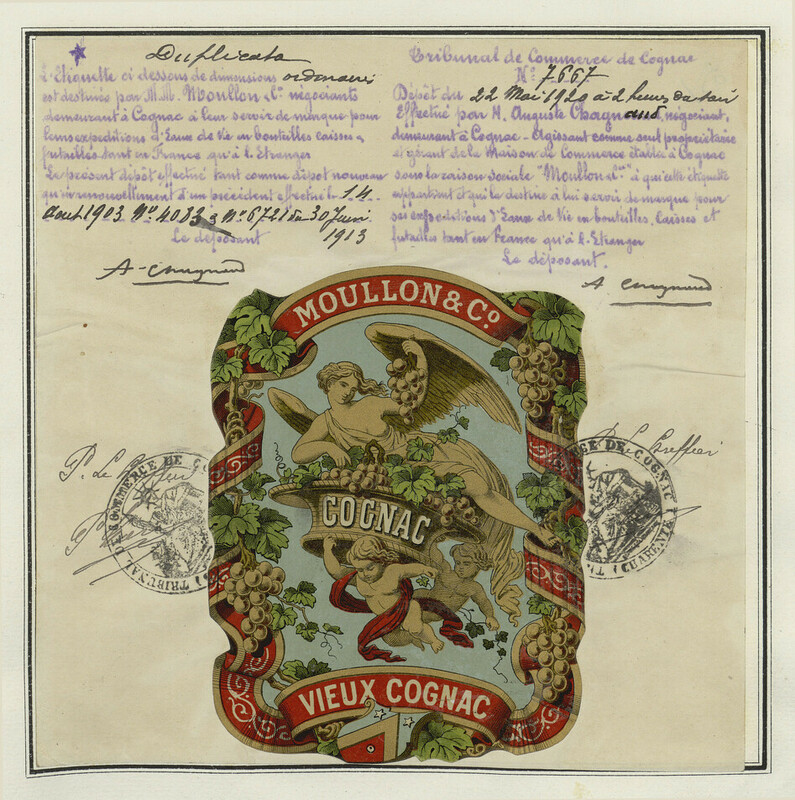 Duplicata
L'Etiquette ci dessous de dimensions ordinaires
est destinée par M.M. Moullon & Cº négociants
demeurant à Cognac à leur servir de marque pour
leurs expéditions d'Eaux de Vie en bouteilles caisses &
futailles tant en France qu'à l'Etranger
Le présent dépôt effectué tant comme dépôt nouveau
qu'en renouvellement d'un précédent effectué le 14
Aout 1903 Nº 4083 & Nº 6721 du 30 Juin
1913
Le déposant
Tribunal de Commerce de Cognac
Nº 7667
Dépôt du 22 Mai 1920 à 2 heures du soir
Effectué par M. Auguste Chagnaud, négociant,
demeurant à Cognac - Agissant comme seul propriétaire
et gérant de la Maison de Commerce établie à Cognac
sous la raison sociale "Moullon & Cie" à qui cette étiquette
appartient et qui la destine à lui servir de marque pour
ses expéditions d'Eaux de Vie en bouteilles, caisses et
futailles tant en France qu'à l'Etranger
Le déposant.
A. Chagnaud
A Chagnaud
MOULLON & Cº
COGNAC
VIEUX COGNAC
P. Le Greffier
Le Greffier
TRIBUNAL DE COMMERCE DE
DE COGNAC